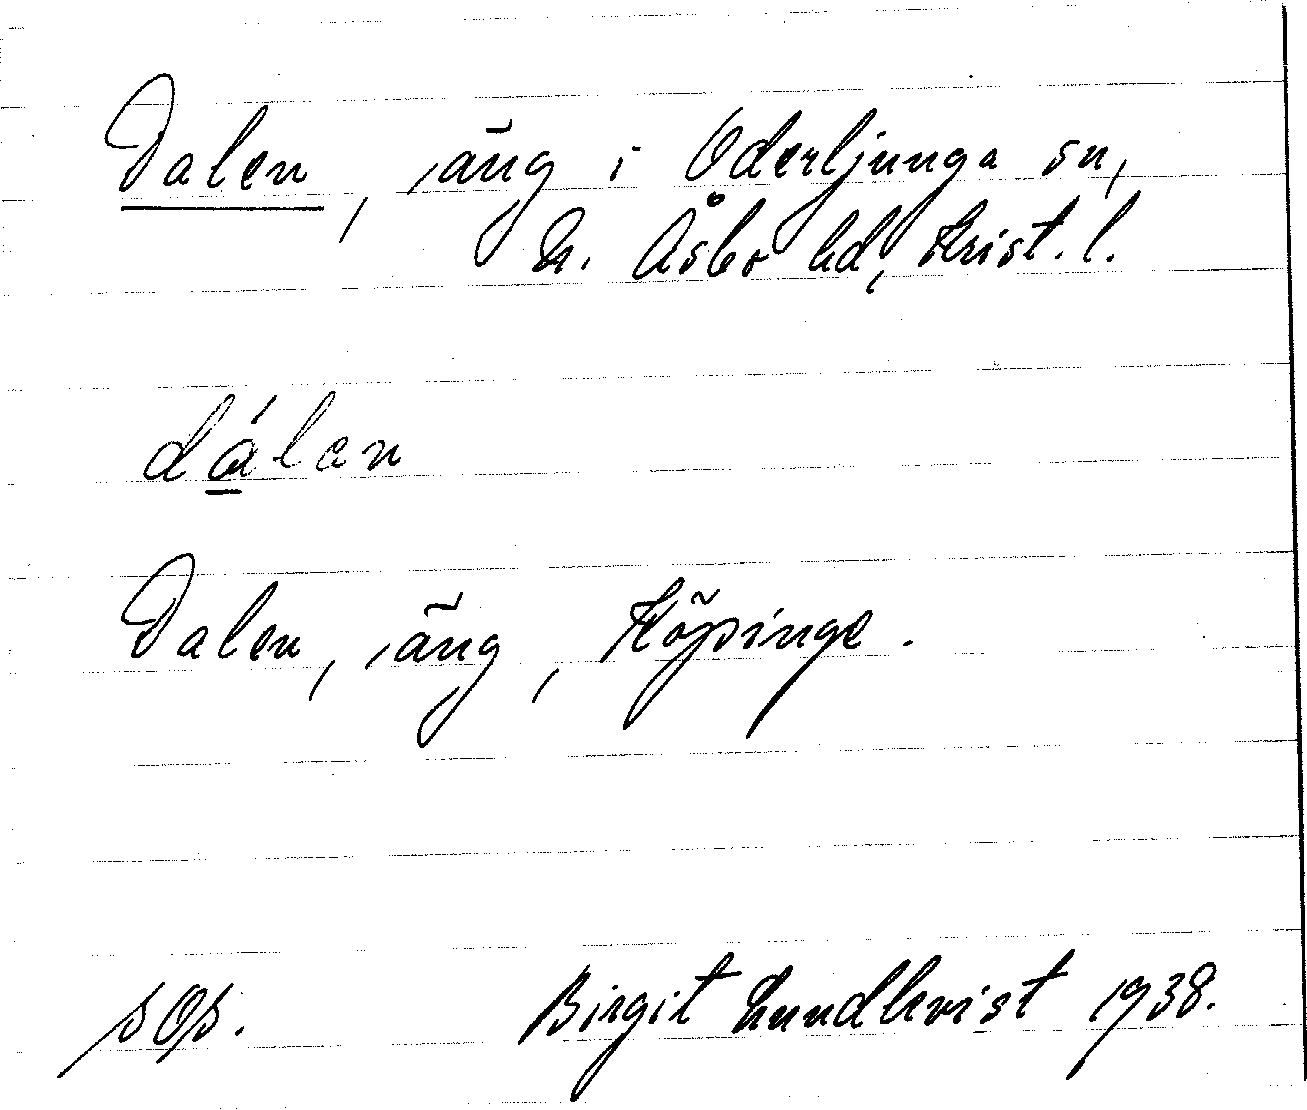 Dalen, äng i Oderljunga sn,
N. Åsbo hd, Krist. l.
dálen
Dalen, äng, Köpinge.
sOs.
Birgit Lundkvist 1938.